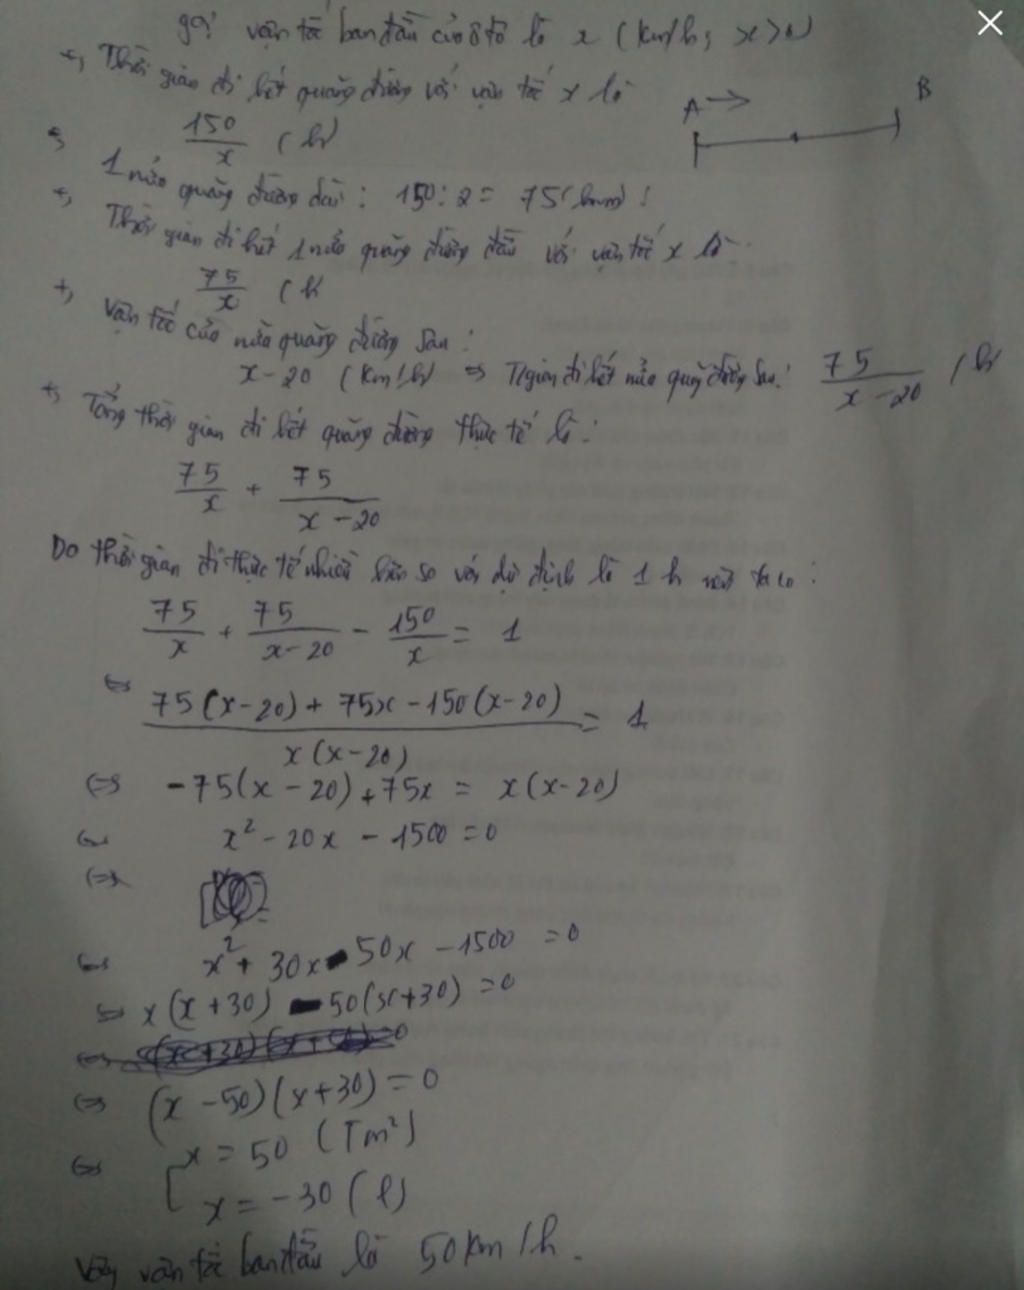 gọi vận tốc ban đầu của ô tô là x (km/h; x>0)
+, Thời gian đi hết quãng đường với vận tốc x là
A → B
150/x (h)
1 nửa quãng đường dài : 150 : 2 = 75 (km)
+, Thời gian đi hết 1 nửa quãng đường đầu với vận tốc x là
75/x (h
+, Vận tốc của nửa quãng đường sau :
x - 20 (km/h) => T/gian đi hết nửa quãng đường sau: 75/(x - 20) (h
+, Tổng thời gian đi hết quãng đường thực tế là :
75/x + 75/(x - 20)
Do thời gian đi thực tế nhiều hơn so với dự định là 1 h nên ta có :
75/x + 75/(x - 20) - 150/x = 1
<=> (75(x-20) + 75x - 150(x-20))/(x(x-20)) = 1
<=> -75(x - 20) + 75x = x(x-20)
<=> x² - 20x - 1500 = 0
<=>
<=> x² + 30x - 50x - 1500 = 0
<=> x(x+30) - 50(x+30) = 0
<=> (x - 50)(x+30) = 0
<=> [ x = 50 (Tm²)
x = -30 (l)
Vậy vận tốc ban đầu là 50 km/h.